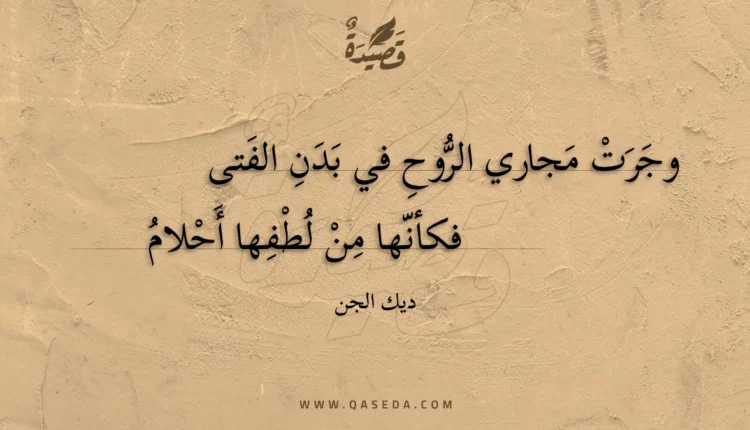 قَصِيْدَةٌ
وجَرَتْ مَجاري الرُّوحِ في بَدَنِ الفَتى
فكأنّها مِنْ لُطْفِها أَحْلامُ
ديك الجن
WWW.QASEDA.COM